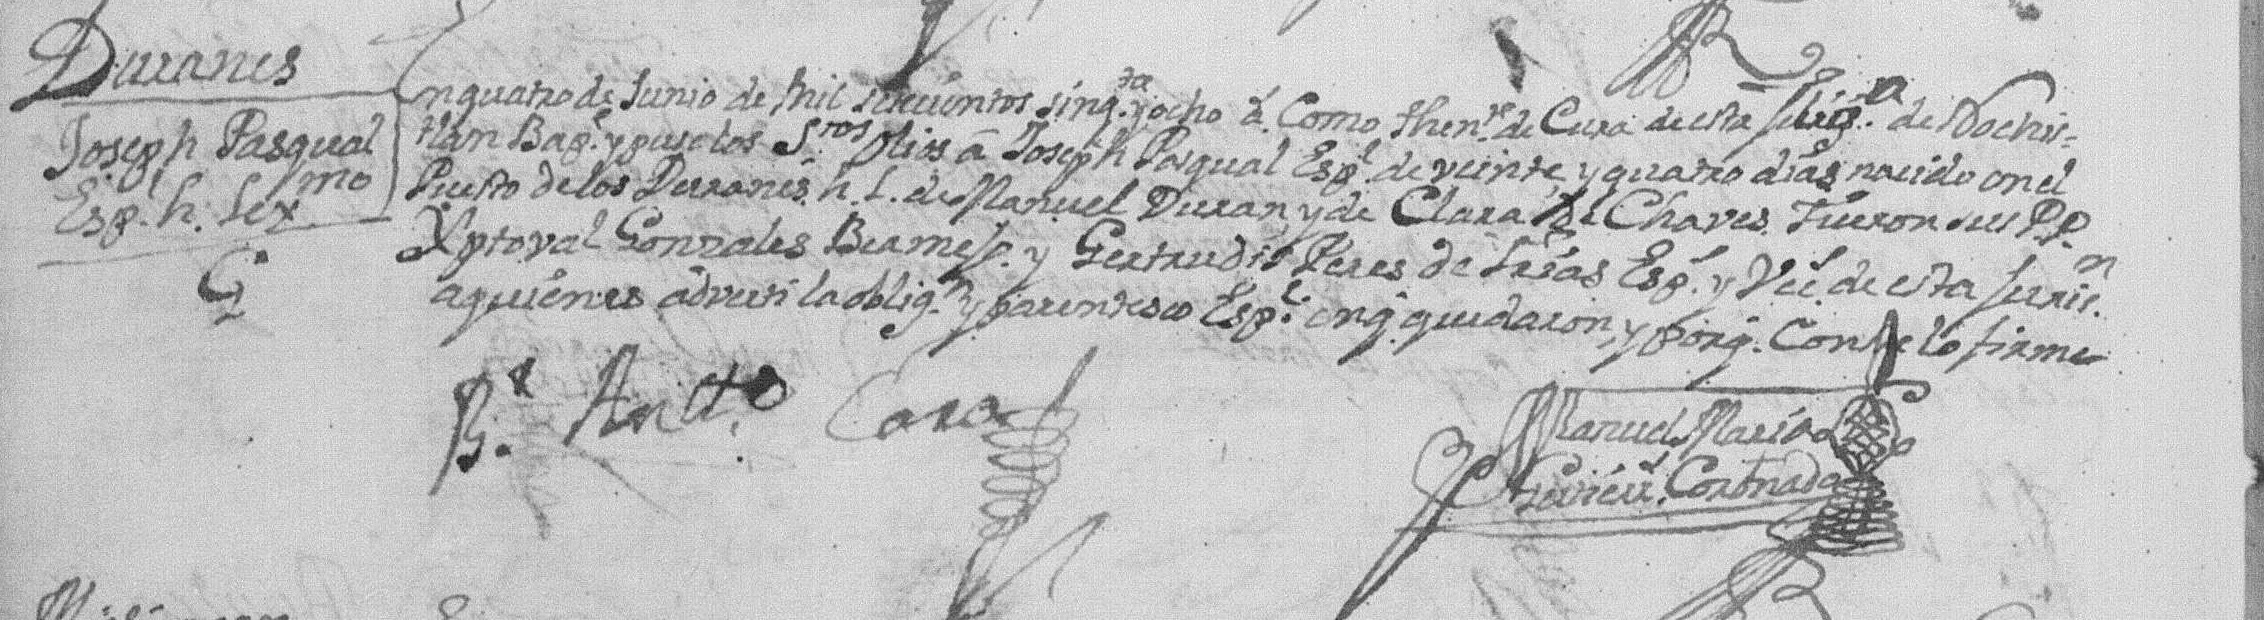 Duranes
Joseph Pasqual
Esp.l h. Lexmo
En quatro de Junio de mil setecientos sinq.ta y ocho a.s Como then.te de Cura de esta Juris.n de Nochis-
tlan Bap.e y puse los S.tos Olios â Joseph Pasqual Esp.l de veinte y quatro dias nacido en el
Puesto de los Durranes h. L. de Manuel Duran y de Clara de Chaves. Fueron sus P.P.
Xptoval Gonzales Bermejo. y Gertrudis Peres de Frias Esp.s y Vec.s de esta Juris.n
a quienes adverti la oblig.n y parentesco Esp.l en q. quedaron, y porq. Conste lo firme
B.r Ant.o Cara
Manuel Maria
Coronado